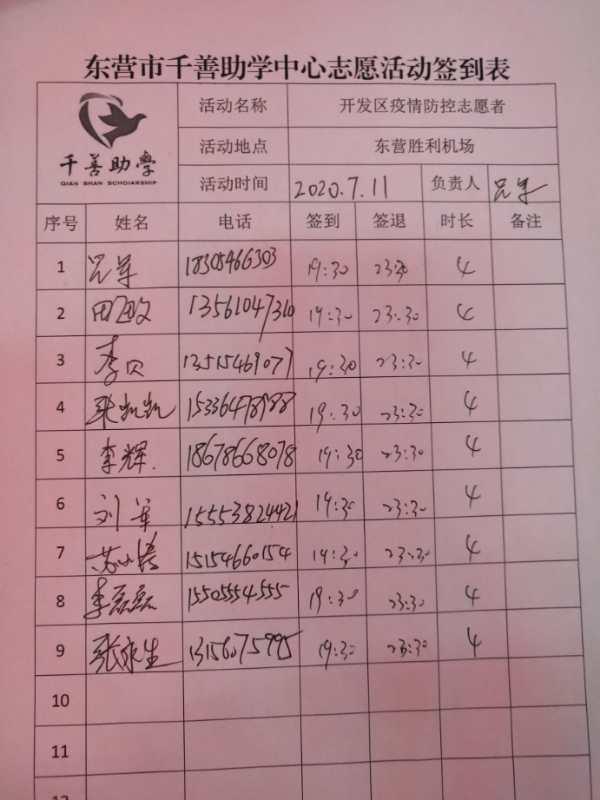 东营市千善助学中心志愿活动签到表
千善助学
QIAN SHAN SCHOLARSHIP
活动名称 开发区疫情防控志愿者
活动地点 东营胜利机场
活动时间 2020.7.11 负责人
序号 姓名 电话 签到 签退 时长 备注
1 18305466303 19:30 23:30 4
2 田 13561047310 19:30 23:30 4
3 李贝 13515469077 19:30 23:30 4
4 张凯凯 19:30 23:30 4
5 李辉 18678668078 19:30 23:30 4
6 刘军 15553824421 19:30 23:30 4
7 苏 15154660154 19:30 23:30 4
8 李磊磊 15505554555 19:30 23:30 4
9 张永生 13156075995 19:30 23:30 4
10
11
12